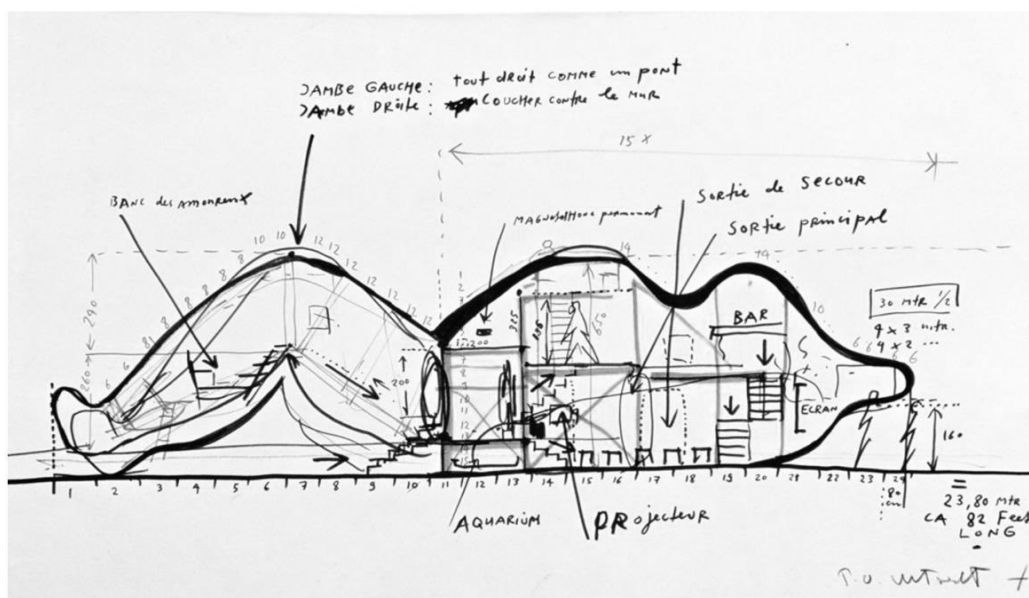 JAMBE GAUCHE: tout droit comme un pont
JAMBE DROITE: COUCHER contre le MUR
15 X
BANC des amoureux
SORTIE de SECOUR
SORTIE principal
10 10 12 12
290
260
200
14
BAR
ECRAN
30 MTR 1/2
4 x 3 mtr.
4 x 2 ...
160
1 2 3 4 5 6 7 8 9 10 11 12 13 14 15 16 17 18 19 20 21 22 23 24
80 cm
AQUARIUM
PROjecteur
=
23,80 MTR
CA 82 Feet
LONG